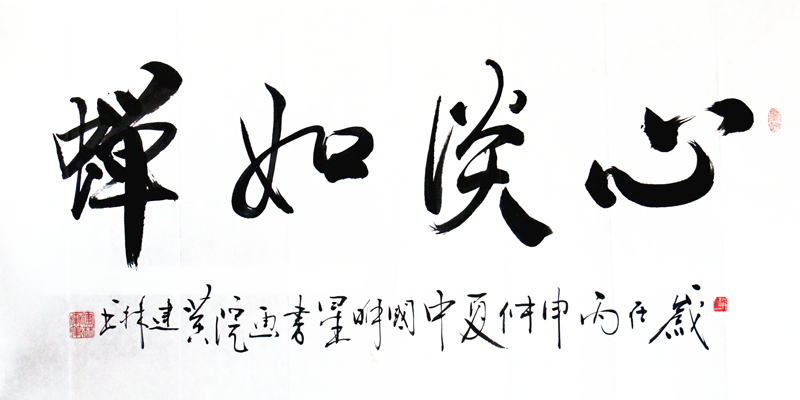 心淡如蝉
歲在丙申仲夏中國明星書画院黄建林书